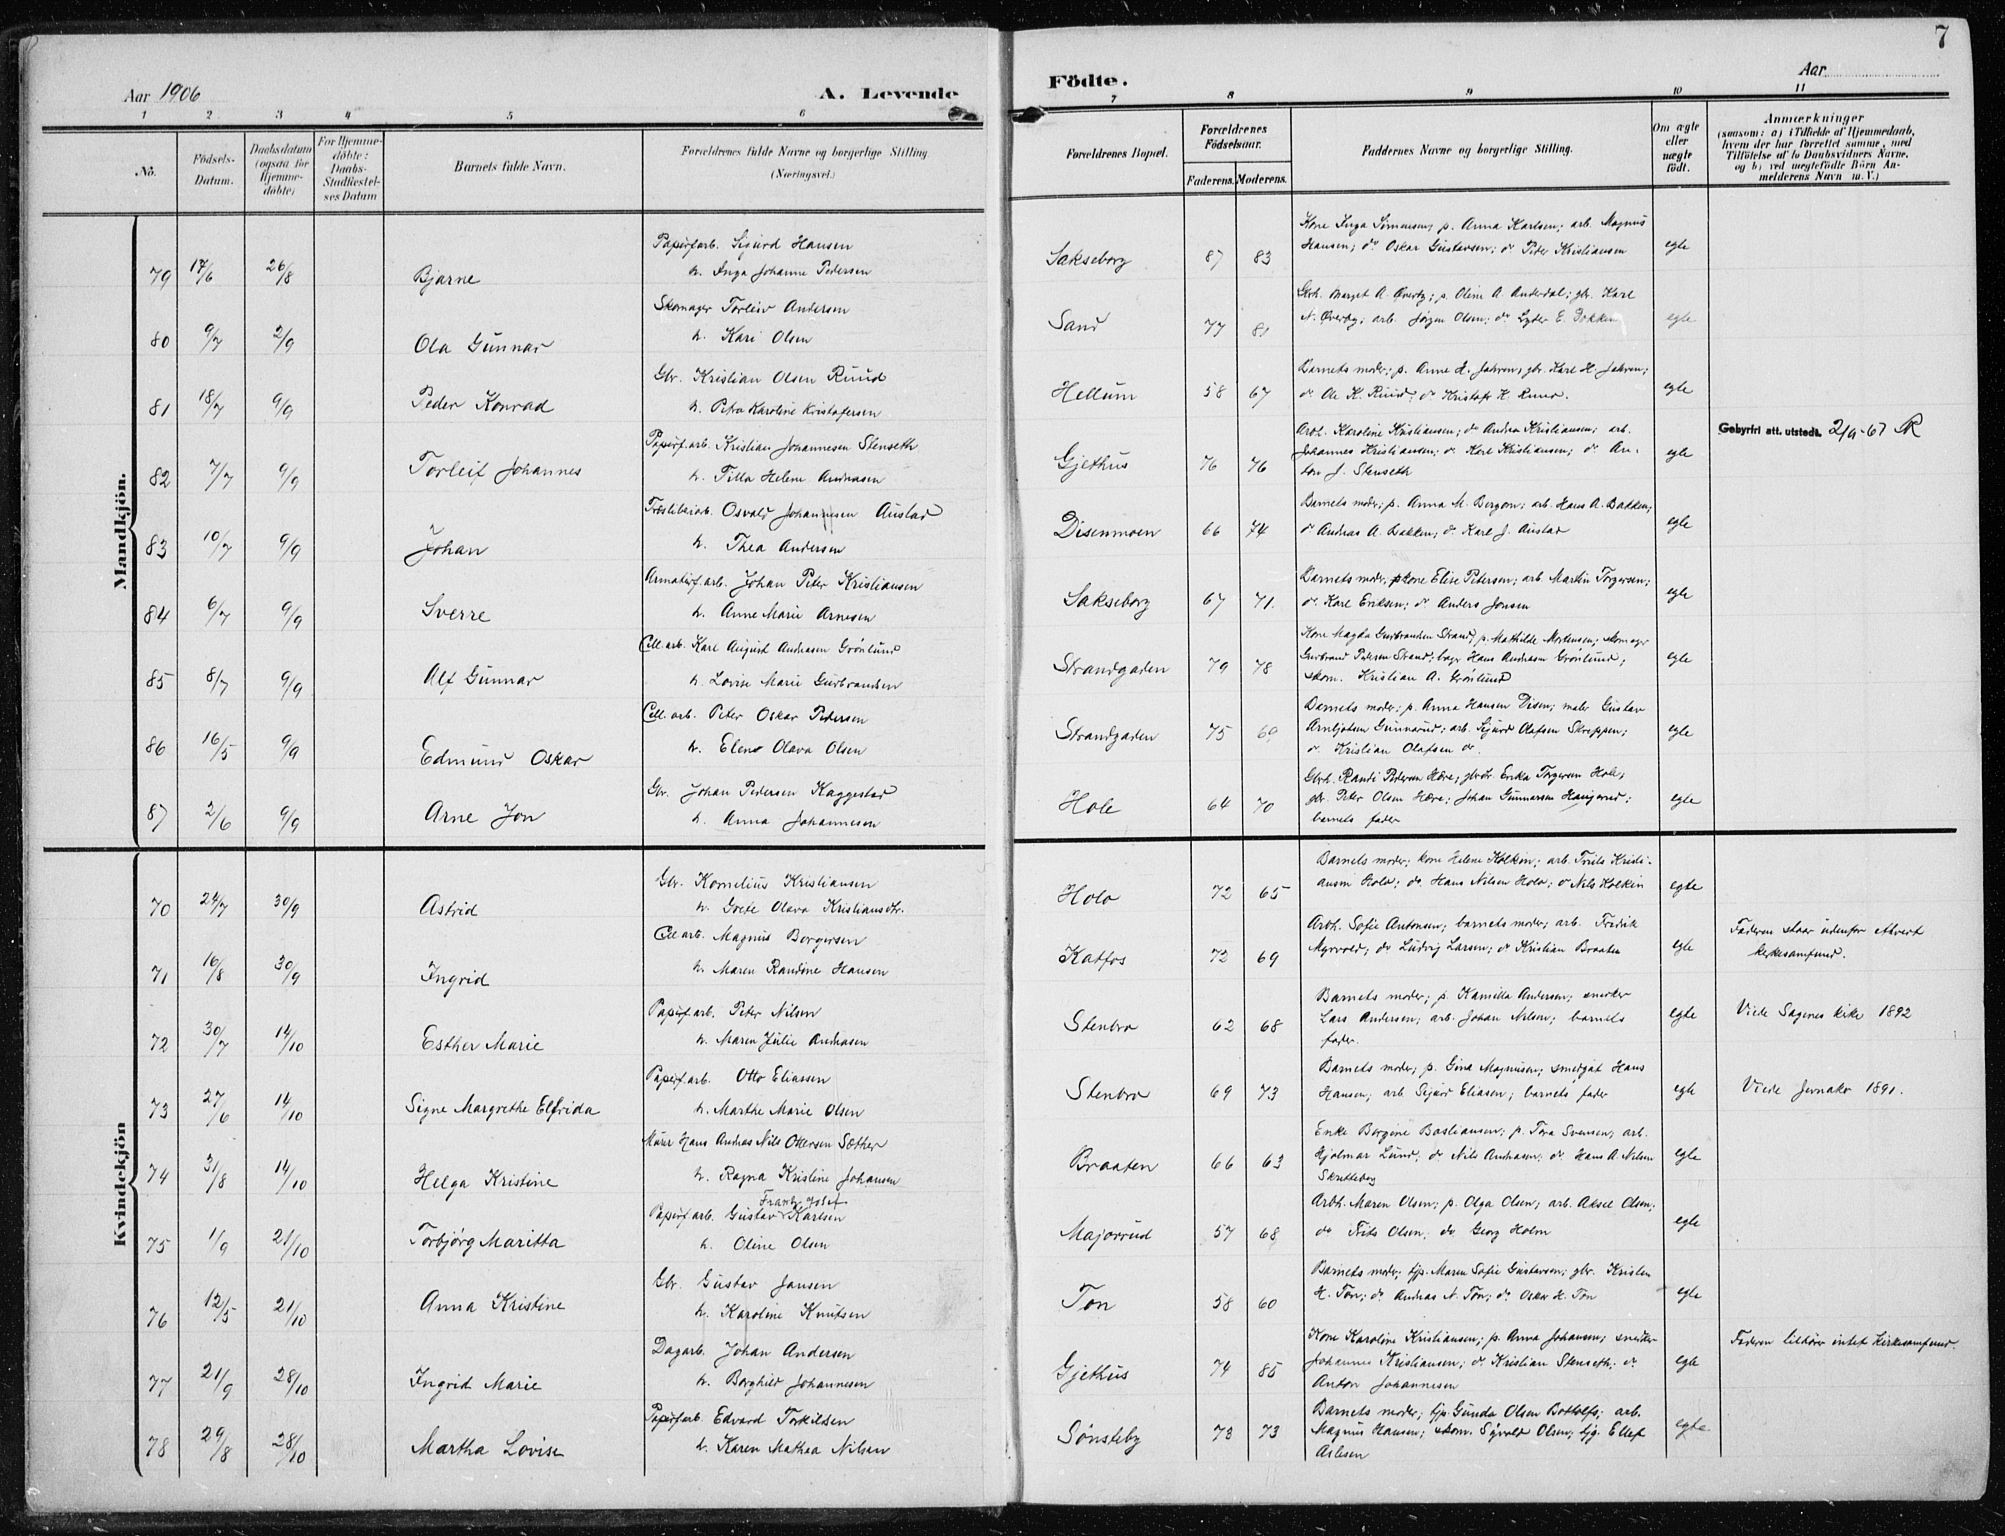 7
Aar 1906
A. Levende
Födte.
Aar
1 2 3 4 5 6 7 8 9 10 11
No.
Födsels-
Datum.
Daabsdatum
(ogsaa for
Hjemme-
døbte)
For Hjemme-
døbte:
Daabs-
Stadfæstel-
ses Datum
Barnets fulde Navn.
Forældrenes fulde Navne og borgerlige Stilling
(Næringsvei.)
Forældrenes Bopæl.
Forældrenes
Födselsaar.
Faderens. Moderens.
Faddernes Navne og borgerlige Stilling.
Om ægte
eller
uægte
födt.
Anmærkninger
(saasom: a) i Tilfælde af Hjemmedaab,
hvem der har forrettet samme, med
Tilföielse af to Daabsvidners Navne,
og b) ved uægtefödte Börn An-
melderens Navn m. V.)
Mandkjön.
79 17/6 26/8 Bjarne
Papirfarb. Sigurd Hansen
h. Inga Johanne Pedersen
Sakseborg 87 83
Kone Inga Simensen; p. Anna Karlsen; arb. Magnus
Hansen; do Oskar Gustavsen; do Peter Kristiansen
egte
80 9/7 2/9 Ola Gunnar
Skomager Torleiv Andersen
h. Kari Olsen
Sand 77 81
Gbrh. Marget A. Øverby; p. Oline A. Anderdal; gbr. Karl
N. Øverby; arb. Jørgen Olsen; do Lyder E. Bakken
egte
81 18/7 9/9 Peder Konrad
Gbr. Kristian Olsen Ruud
h. Petra Karoline Kristofersen
Hellum 58 67
Barnets moder; p. Anne H. Jahren; gbr. Karl H. Jahren;
do Ole K. Ruud; do Kristofr K. Ruud.
egte
82 7/7 9/9 Torleif Johannes
Papirf.arb. Kristian Johannesen Stenseth
h. Tilla Helene Andreasen
Gjethus 76 76
Arbh. Karoline Kristiansen; do Andrea Kristiansen; arb.
Johannes Kristiansen; do Karl Kristiansen; do An-
ton J. Stenseth
egte
Gebyrfri att. utstedt. 2/9-67
83 10/7 9/9 Johan
Træsliberiarb. Osvald Johannesen Austad
h. Thea Andersen
Disenmoen 66 74
Barnets moder; p. Anna M. Bergan; arb. Hans A. Bakken;
do Andreas A. Bakken; do Karl J. Austad
egte
84 6/7 9/9 Sverre
Armaturf.arb. Johan Peter Kristiansen
h. Anne Marie Arnesen
Sakseborg 67 71.
Barnets moder; kone Elise Petersen; arb. Martin Torgersen;
do Karl Eriksen; do Anders Jonsen
egte
85 8/7 9/9 Alf Gunnar
Cell.arb. Karl August Andreasen Grønlund
h. Lovise Marie Gurbrandsen
Strandgaden 79 78
Kone Magda Gurbrandsen Strand; p. Mathilde Mortensen; skomager
Gurbrand Pedersen Strand; bager Hans Andreasen Grønlund;
skom. Kristian A. Grønlund
egte
86 16/5 9/9 Edmund Oskar
Cell.arb. Peter Oskar Pedersen
h. Elens Olava Olsen
Strandgaden 75 69
Barnets moder; p. Anna Hansen Disen; maler Gustav
Arnbjotsen Gunnerud; arb. Sigurd Olafsen Skreppen;
do Kristian Olafsen do.
egte
87 2/6 9/9 Arne Jon
Gbr. Johan Pedersen Kaggestad
h. Anna Johannesen
Hole 64 70
Gbrh. Randi Pedersen Hære; Erika Torgersen Hole;
gbr. Peter Olsen Hære; Johan Gunnarsen Haugerud;
barnets fader
egte
Kvindekjön
70 24/7 30/9 Astrid
Gbr. Kornelius Kristiansen
h. Grete Olava Kristiansdtr.
Holo 72 65
Barnets moder; kone Helene Kolkin; arb. Frits Kristi-
ansen Holo; do. Hans Nilsen Holo; do Nils Kolkin
egte
71 16/8 30/9 Ingrid
Cell arb. Magnus Borgersen
h. Maren Randine Hansen
Katfos 72 69
Arbh. Sofie Antonsen; barnets moder; arb. Fredrik
Myrvold; do Ludvig Larsen; do Kristian Braaten
egte
Faderen staar udenfor ethvert
kirkesamfund.
72 30/7 14/10 Esther Marie
Papirf arb. Peter Nilsen
h. Maren Julie Andreasen
Stenbro 62 68
Barnets moder; p. Kamilla Andersen; snedker
Lars Andersen; arb. Johan Nilsen; barnets
fader.
egte
Viede Sagenes kirke 1892
73 27/6 14/10 Signe Margrethe Elfrida
Papirf.arb. Otto Eliassen
h. Marthe Marie Olsen
Stenbro 69 73
Barnets moder; p. Gina Magnusen; smedgut Hans
Hansen; arb Sigurd Eliasen; barnets fader
egte
Viede Jevnaker 1891.
74 31/8 14/10 Helga Kristine
Murer Hans Andreas Nils Ottersen Sæther
h. Ragna Kristine Johansen
Braaten 66 63
Enke Borgine Bastiansen; p. Tora Svensen; arb.
Hjalmar Lund; do Nils Andreasen; do Hans A. Nilsen
egte
75 1/9 21/10 Torbjørg Maritta
Frantz Josef
Papirf arb. Gustav Karlsen
h. Oline Olsen
Majorrud 57 68
Arbh. Maren Olsen; p. Olga Olsen; arb. Aksel Olsen;
do Frits Olsen; do Georg Holm
egte
76 12/5 21/10 Anna Kristine
Gbr. Gustav Jansen
h. Karoline Knutsen
Ton 58 60
Barnets moder; tjp. Maren Sofie Gustavsen; gbr. Kristen
H. Ton; do. Andreas N. Ton; do Oskar H. Ton
egte
77 21/9 28/10 Ingrid Marie
Dagarb. Johan Andersen
h. Borghild Johannesen
Gjethus 74 85
Kone Karoline Kristiansen; p. Anna Johansen; snedker
Johannes Kristiansen; do Kristian Stenseth; do
Anton Johannesen
egte
Faderen tilhører intet kirkesamfund.
78 29/8 28/10 Martha Lovise
Papirfarb. Edvard Torkildsen
h. Karen Mathea Nilsen
Sønsteby 73 73
Barnets moder; tjp. Gunda Olsen Bottolfs; arb.
Magnus Hansen; skom. Sigvald Olsen; tjg. Ellef
Aslesen
egte